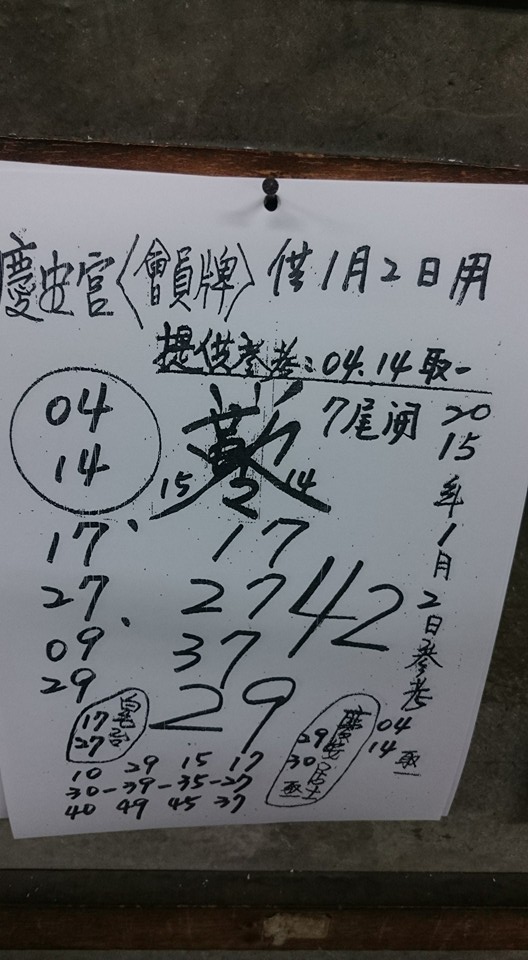 慶安宮〈會員牌〉供1月2日用
提供參考：04.14取一
04
14
7尾開
15 2 14
17
27
09
29
17
27
37
29
42
2015年1月2日參考
04
14取
17
27
29
30
取
10 29 15 17
30-39-35-27
40 49 45 37